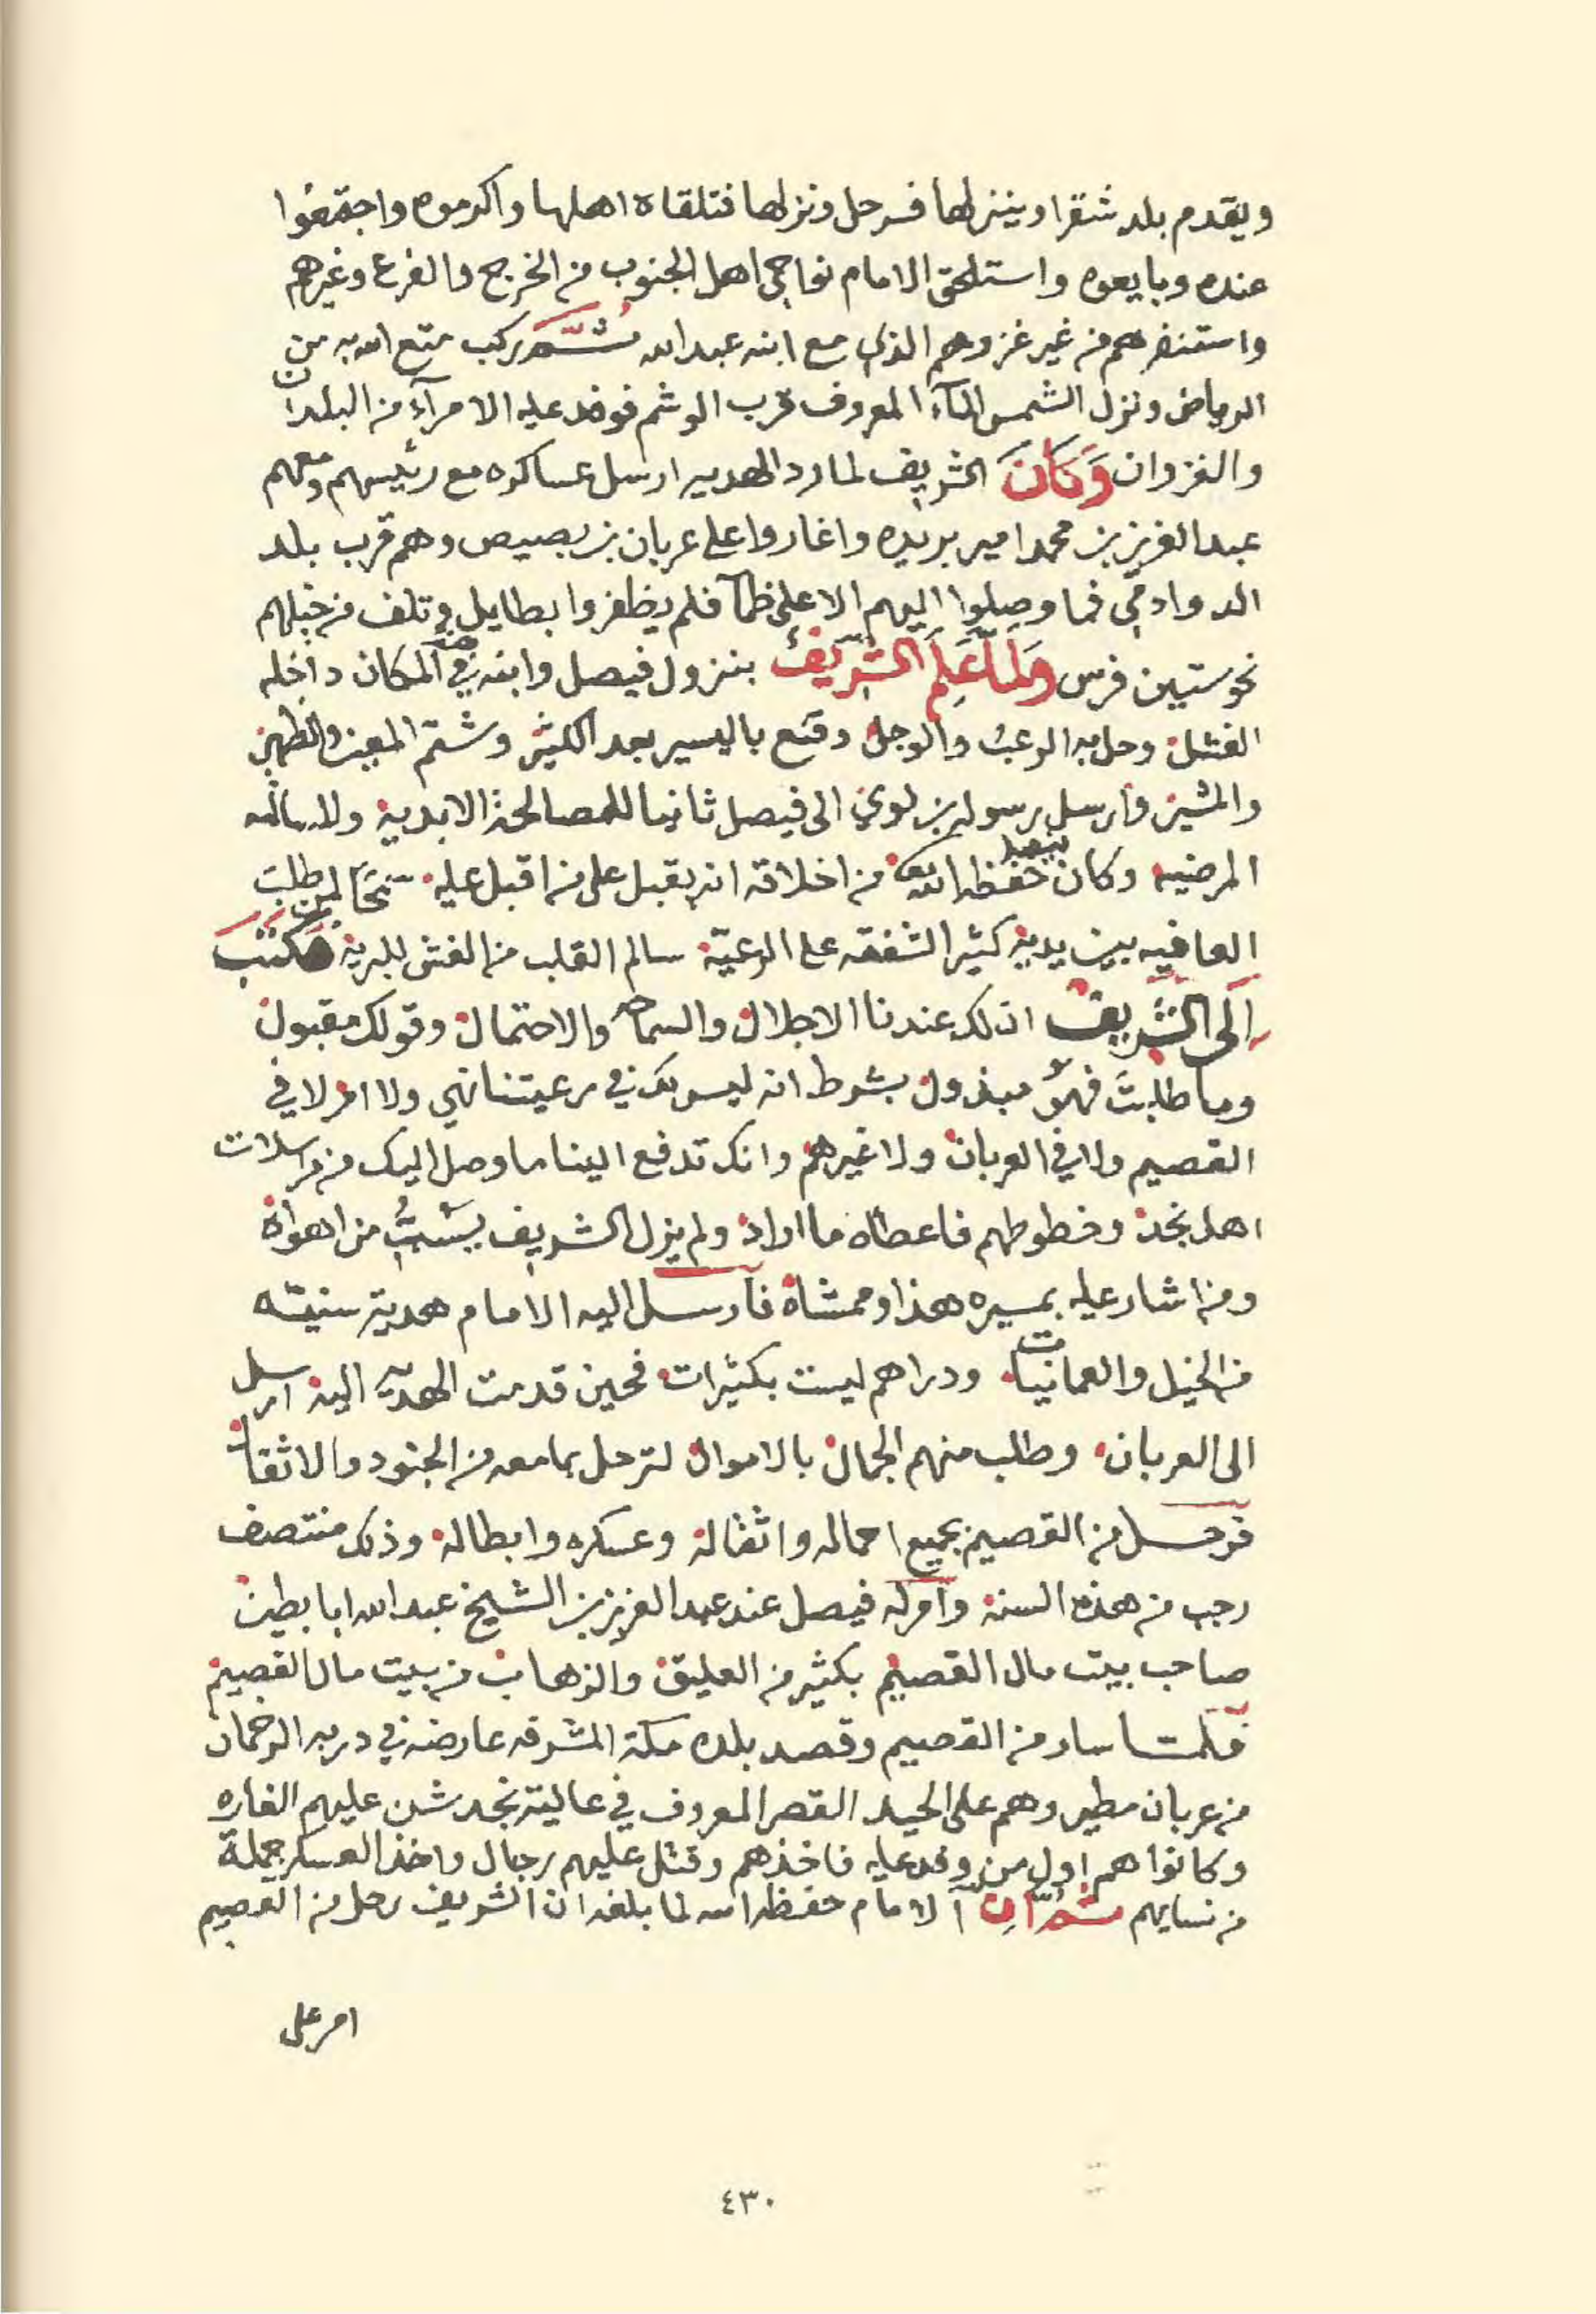 ويقدم بلد شقرا وينزلها فرحل ونزلها فتلقاه اهلها واكرموه واجتمعوا
عنده وبايعوه واستلحق الامام نواحي اهل الجنوب من الخرج والفرع وغيرهم
واستنفرهم من غير غزوهم الذي مع ابنه عبدالله ثُمَّ ركب متع الله به من
الرياض ونزل الشمس المآء المعروف قرب الوشم فوفد عليه الامرآء من البلدان
والغزوان وَكَانَ الشريف لما رد الهديه ارسل عساكره مع رئيسهم ومعهم
عبدالعزيز بن محمد امير بريده واغاروا على عربان بن بصيص وهم قرب بلد
الدوادمي فما وصلوا اليهم الا على ظمآ فلم يظفروا بطايل وتلف من خيلهم
نحو ستين فرس وَلَمَّا عَلِمَ الشَّرِيفُ بنزول فيصل وابنه في المكان داخله
الفشل وحل به الرعب والوجل وقنع باليسير بعد الكثير وشتم المعين والظهير
والمشير وارسل رسوله بن لوي الى فيصل ثانيا للمصالحة الابدية والمسالمه
المرضيه وكان حفظه الله من اخلاقه انه يقبل على من اقبل عليه لمن طلب
العافيه بين يديه كثير الشفقه على الرعيّة سالم القلب من الغش للبرية فكتب
الى الشريف ان لك عندنا الاجلال والسماحه والاحتمال وقولك مقبول
وما طلبتَ فهو مبذول بشرط انه ليس لك في رعيتنا نهي ولا امر لا في
القصيم ولا في العربان ولا غيرهم وانك تدفع الينا ما وصل اليك من مراسلات
اهل نجد وخطوطهم فاعطاه ما اراد ولم يزل الشريف يسُبُّ من اهواه
ومن اشار عليه بمسيره هذا وممشاه فأرسل اليه الامام هدية سنيّه
من الخيل والعمانيات ودراهم ليست بكثيرات فحين قدمت الهديّه اليه ارسل
الى العربان وطلب منهم الجمال بالاموال لترحل بما معه من الجنود والاثقال
فرحل من القصيم بجميع احماله واثقاله وعسكره وابطاله وذلك منتصف
رجب من هذه السنه وآمر له فيصل عند عبدالعزيز بن الشيخ عبدالله ابا بطين
صاحب بيت مال القصيم بكثير من العليق والزهاب من بيت مال القصيم
فلمّا سار من القصيم وقصد بلده مكة المشرفه عارضه في دربه الرخمان
من عربان مطير وهم على الحيد القصر المعروف في عالية نجد شن عليهم الغاره
وكانوا هم اول من وفد عليه فاخذهم وقتل عليهم رجال واخذ العسكر جملة
من نسايهم ثُمَّ اِنَّ الامام حفظه الله لما بلغه ان الشريف رحل من القصيم
امر على
٤٣٠